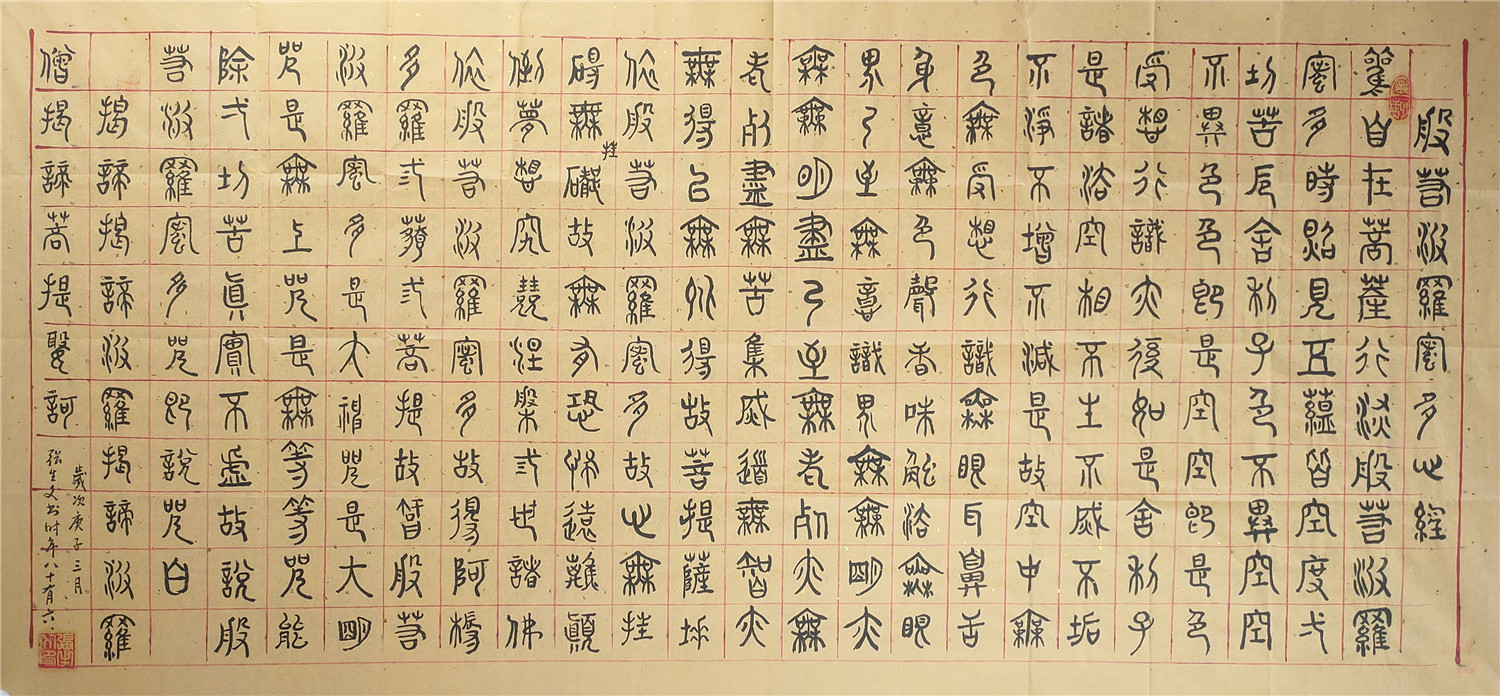 般若波羅蜜多心經
觀自在菩薩行深般若波羅
蜜多時照見五蘊皆空度弌
切苦厄舍利子色不異空空
不異色色即是空空即是色
受想行識亦復如是舍利子
是諸法空相不生不滅不垢
不淨不增不減是故空中無
色無受想行識無眼耳鼻舌
身意無色聲香味觸法無眼
界乃至無意識界無無明亦
無無明盡乃至無老死亦無
老死盡無苦集滅道無智亦
無得以無所得故菩提薩埵
依般若波羅蜜多故心無挂
碍無挂礙故無有恐怖遠離顛
倒夢想究竟涅槃弎世諸佛
依般若波羅蜜多故得阿耨
多羅弎藐弎菩提故智般若
波羅蜜多是大神咒是大明
咒是無上咒是無等等咒能
除弌切苦真實不虛故說般
若波羅蜜多咒即說咒曰
揭諦揭諦波羅揭諦波羅
僧揭諦菩提娑訶
歲次庚子三月
书时年八十有六